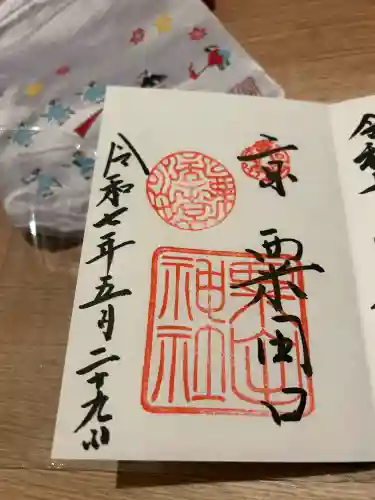 京 粟田口
粟田神社
令和七年五月二十九日
令和